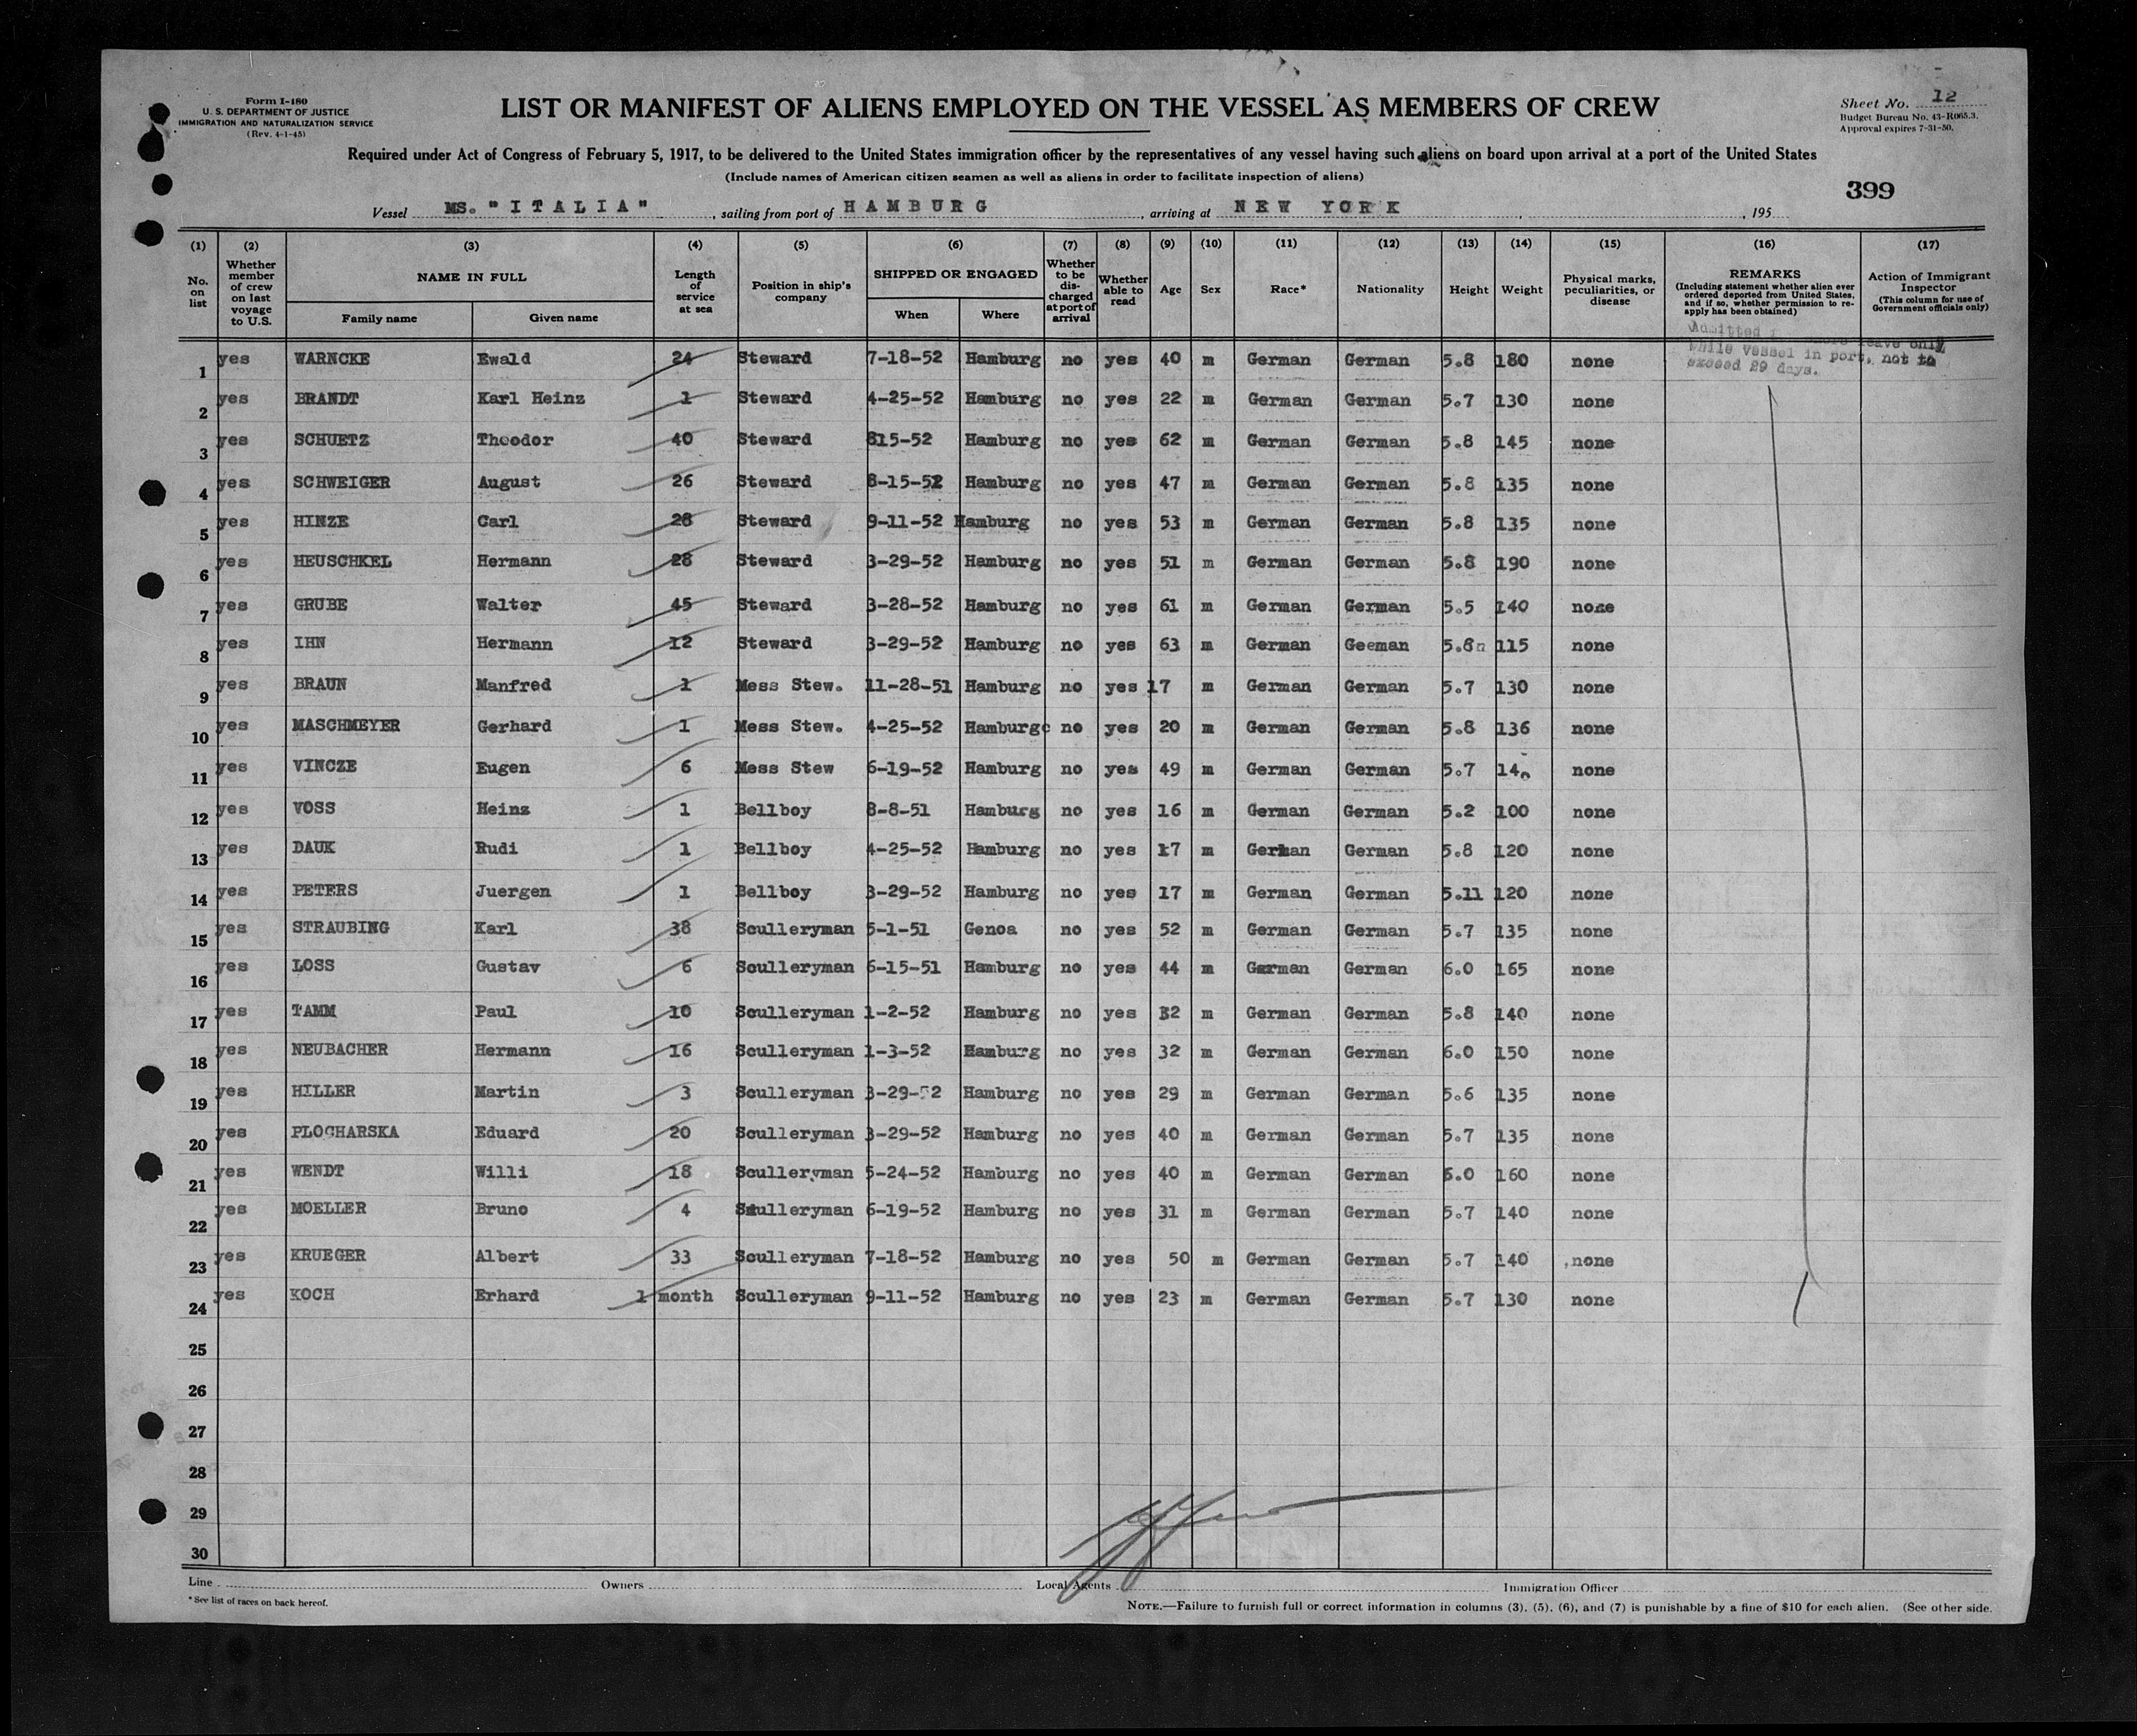 Form I-180
U. S. DEPARTMENT OF JUSTICE
IMMIGRATION AND NATURALIZATION SERVICE
(Rev. 4-1-45)
LIST OR MANIFEST OF ALIENS EMPLOYED ON THE VESSEL AS MEMBERS OF CREW
Sheet No. 12
Budget Bureau No. 43-R065.3.
Approval expires 7-31-50.
Required under Act of Congress of February 5, 1917, to be delivered to the United States immigration officer by the representatives of any vessel having such aliens on board upon arrival at a port of the United States
(Include names of American citizen seamen as well as aliens in order to facilitate inspection of aliens)
399
Vessel MS. "ITALIA", sailing from port of HAMBURG, arriving at NEW YORK, 195
(1) (2) (3) (4) (5) (6) (7) (8) (9) (10) (11) (12) (13) (14) (15) (16) (17)
No. on list
Whether member of crew on last voyage to U.S.
NAME IN FULL
Family name
Given name
Length of service at sea
Position in ship's company
SHIPPED OR ENGAGED
When
Where
Whether to be discharged at port of arrival
Whether able to read
Age
Sex
Race*
Nationality
Height
Weight
Physical marks, peculiarities, or disease
REMARKS
(Including statement whether alien ever ordered deported from United States, and if so, whether permission to reapply has been obtained)
Action of Immigrant Inspector
(This column for use of Government officials only)
Admitted
leave only
while vessel in port, not to
exceed 29 days.
1 yes WARNCKE Ewald 24 Steward 7-18-52 Hamburg no yes 40 m German German 5.8 180 none
2 yes BRANDT Karl Heinz 1 Steward 4-25-52 Hamburg no yes 22 m German German 5.7 130 none
3 yes SCHUETZ Theodor 40 Steward 815-52 Hamburg no yes 62 m German German 5.8 145 none
4 yes SCHWEIGER August 26 Steward 8-15-52 Hamburg no yes 47 m German German 5.8 135 none
5 yes HINZE Carl 28 Steward 9-11-52 Hamburg no yes 53 m German German 5.8 135 none
6 yes HEUSCHKEL Hermann 28 Steward 3-29-52 Hamburg no yes 51 m German German 5.8 190 none
7 yes GRUBE Walter 45 Steward 3-28-52 Hamburg no yes 61 m German German 5.5 140 none
8 yes IHN Hermann 12 Steward 3-29-52 Hamburg no yes 63 m German Geeman 5.8 115 none
9 yes BRAUN Manfred 1 Mess Stew. 11-28-51 Hamburg no yes 17 m German German 5.7 130 none
10 yes MASCHMEYER Gerhard 1 Mess Stew. 4-25-52 Hamburg no yes 20 m German German 5.8 136 none
11 yes VINCZE Eugen 6 Mess Stew 6-19-52 Hamburg no yes 49 m German German 5.7 none
12 yes VOSS Heinz 1 Bellboy 8-8-51 Hamburg no yes 16 m German German 5.2 100 none
13 yes DAUK Rudi 1 Bellboy 4-25-52 Hamburg no yes 17 m German German 5.8 120 none
14 yes PETERS Juergen 1 Bellboy 3-29-52 Hamburg no yes 17 m German German 5.11 120 none
15 yes STRAUBING Karl 38 Sculleryman 5-1-51 Genoa no yes 52 m German German 5.7 135 none
16 yes LOSS Gustav 6 Sculleryman 6-15-51 Hamburg no yes 44 m German German 6.0 165 none
17 yes TAMM Paul 10 Sculleryman 1-2-52 Hamburg no yes 32 m German German 5.8 140 none
18 yes NEUBACHER Hermann 16 Sculleryman 1-3-52 Hamburg no yes 32 m German German 6.0 150 none
19 yes HILLER Martin 3 Sculleryman 3-29-52 Hamburg no yes 29 m German German 5.6 135 none
20 yes PLOCHARSKA Eduard 20 Sculleryman 3-29-52 Hamburg no yes 40 m German German 5.7 135 none
21 yes WENDT Willi 18 Sculleryman 5-24-52 Hamburg no yes 40 m German German 6.0 160 none
22 yes MOELLER Bruno 4 Sculleryman 6-19-52 Hamburg no yes 31 m German German 5.7 140 none
23 yes KRUEGER Albert 33 Sculleryman 7-18-52 Hamburg no yes 50 m German German 5.7 140 none
24 yes KOCH Erhard 1 month Sculleryman 9-11-52 Hamburg no yes 23 m German German 5.7 130 none
25
26
27
28
29
30
Line Owners Local Agents Immigration Officer
* See list of races on back hereof.
NOTE.—Failure to furnish full or correct information in columns (3), (5), (6), and (7) is punishable by a fine of $10 for each alien. (See other side.